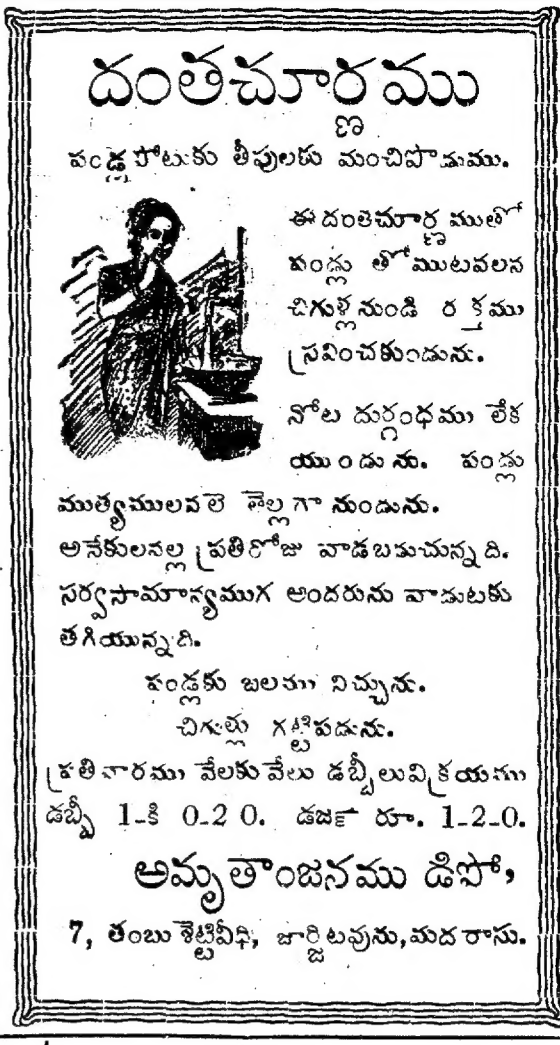 దంతచూర్ణము
పండ్లపోటుకు తీపులకు మంచిపొడుము.
ఈ దంతచూర్ణముతో
పండ్లు తోముటవలన
చిగుళ్లనుండి రక్తము
స్రవించకుండును.
నోట దుర్గంధము లేక
యుండును. పండ్లు
ముత్యములవలె తెల్లగా నుండును.
అనేకులనల్ల ప్రతిరోజు వాడబడుచున్నది.
సర్వసామాన్యముగ అందరును వాడుటకు
తగియున్నది.
పండ్లకు బలము నిచ్చును.
చిగుళ్లు గట్టిపడును.
ప్రతివారము వేలకువేలు డబ్బీలువిక్రయము
డబ్బీ 1-కి 0-2 0. డజ౯ రూ. 1-2-0.
అమృతాంజనము డిపో,
7, తంబుశెట్టివీధి, జార్జిటవును, మదరాసు.